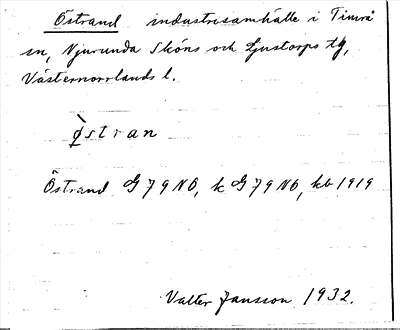 Östrand industrisamhälle i Timrå
sn, Njurunda Sköns och Ljustorps tg,
Västernorrlands l.
œ̀stran
Östrand G 79 NO, k G 79 NO, kb 1919
Valter Jansson 1932.